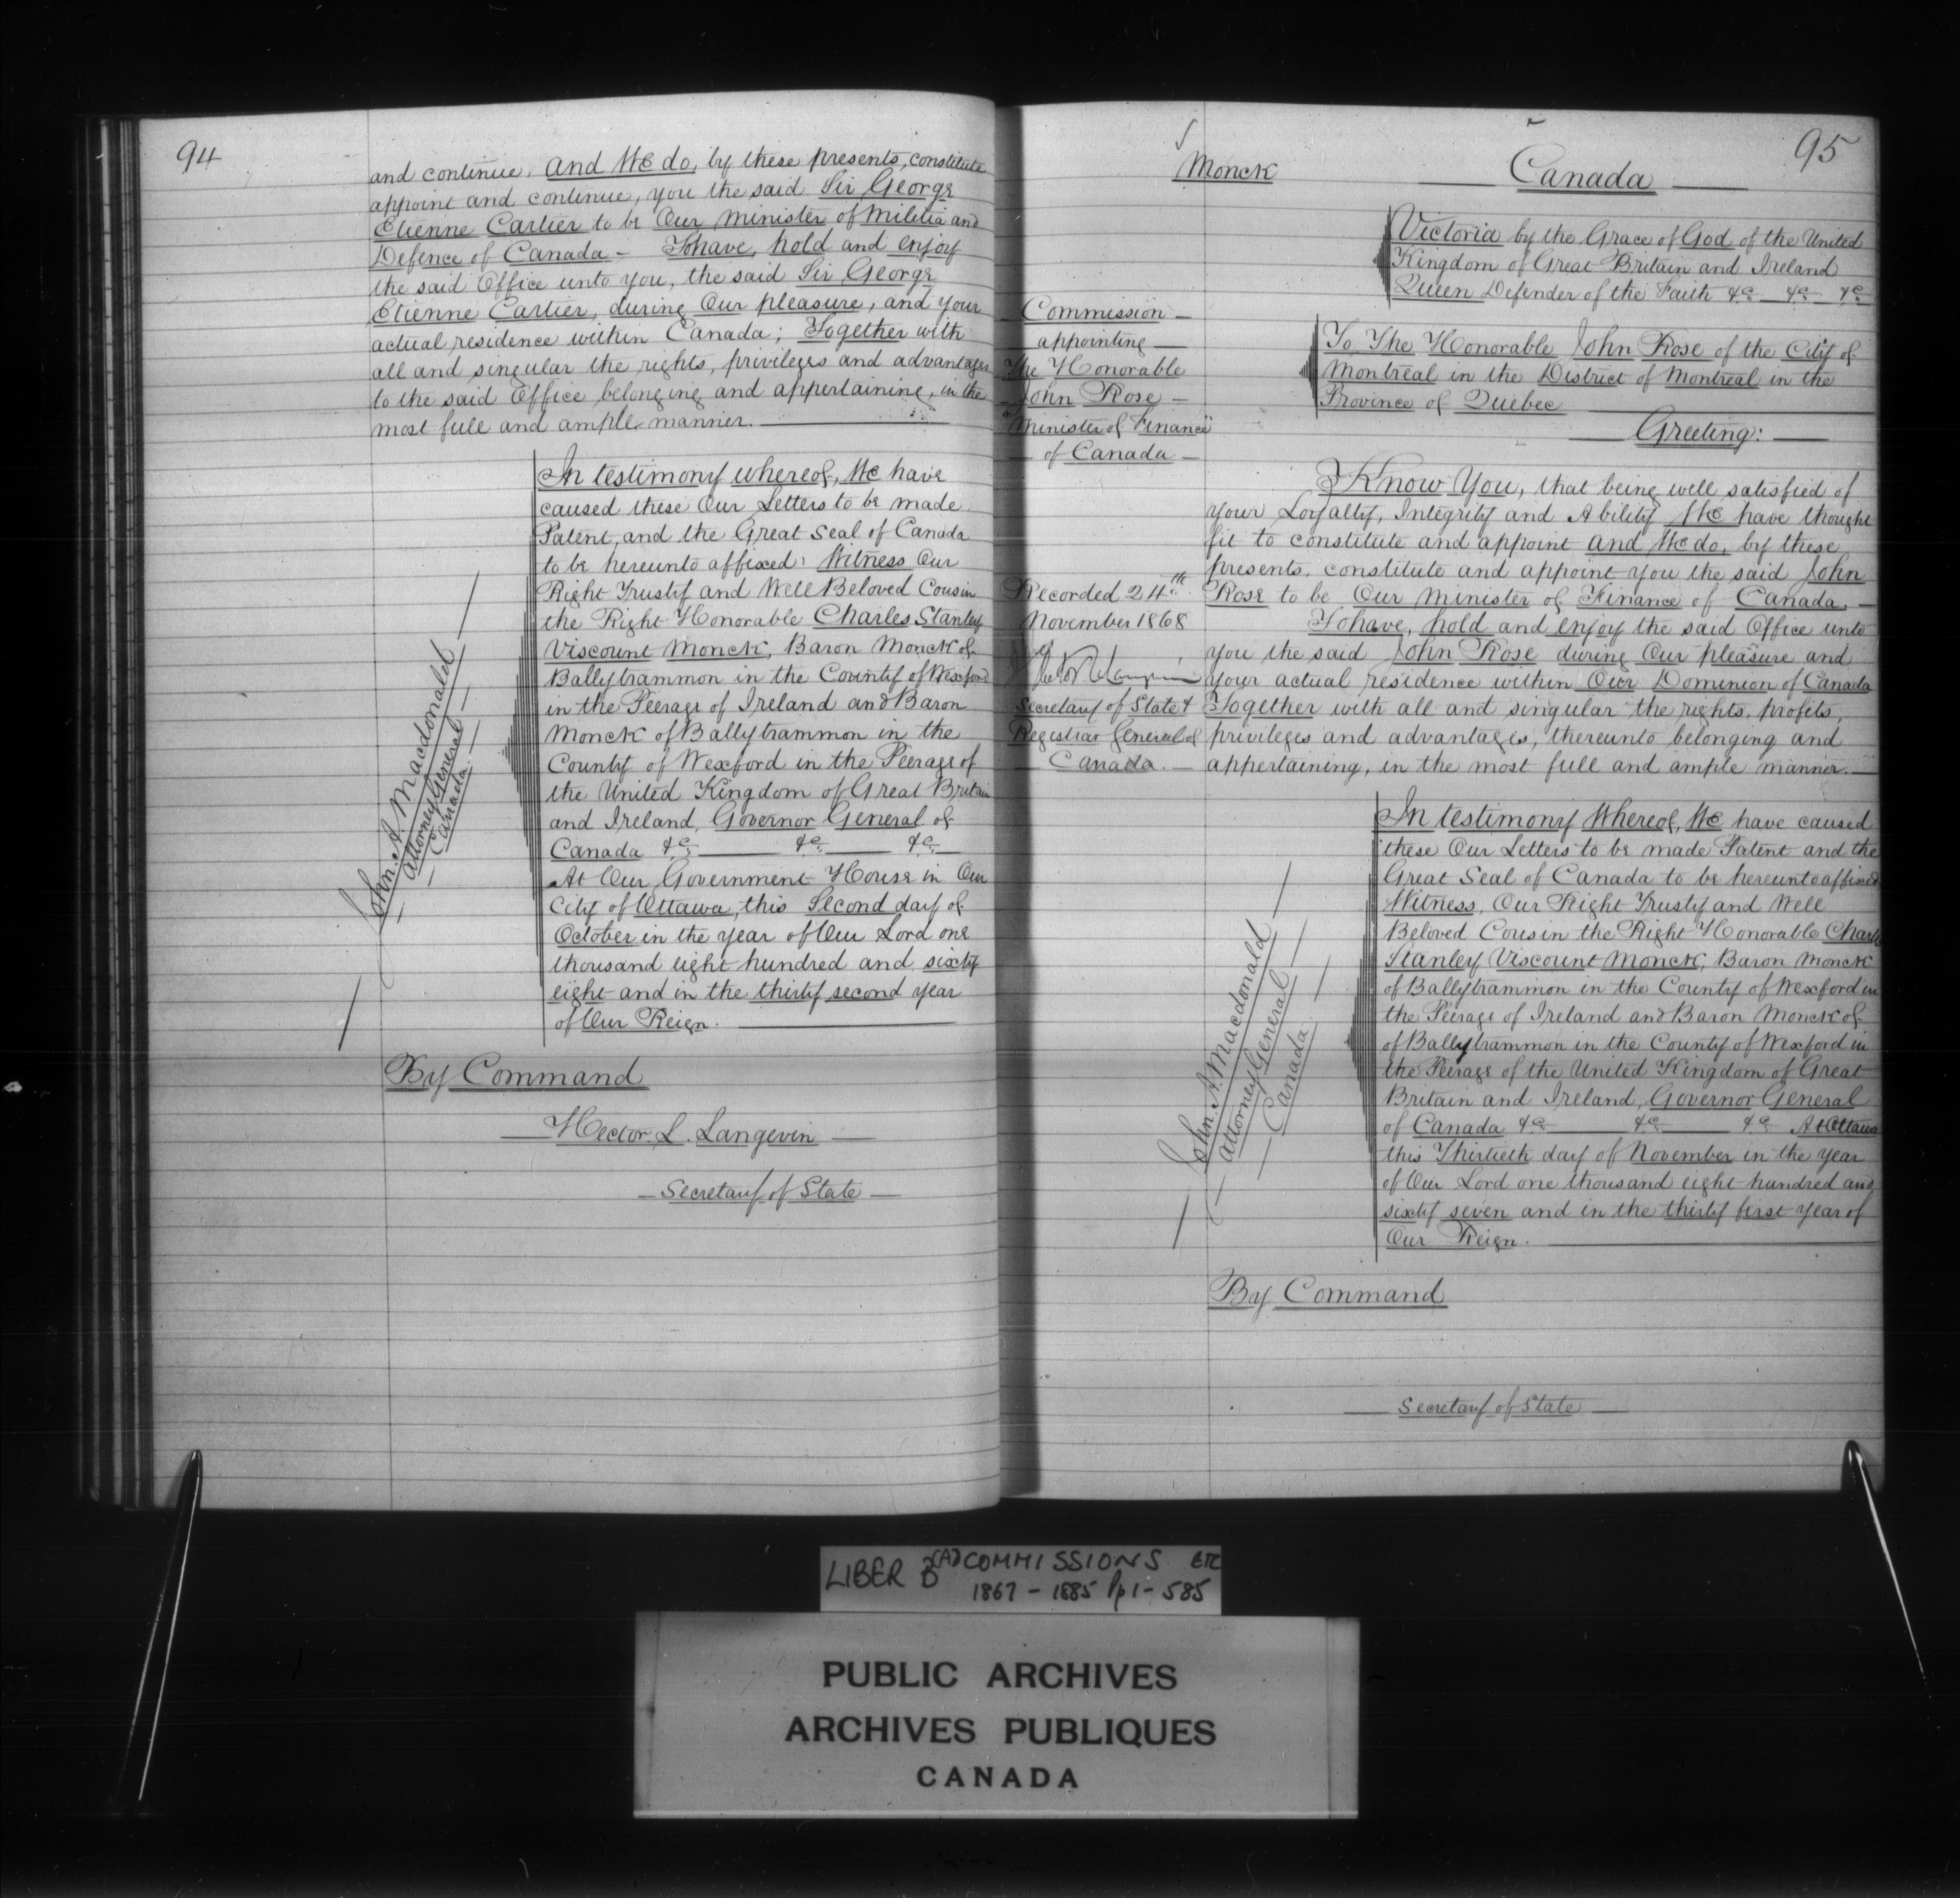 94
and continue, and We do, by these presents, constitute
appoint and continue, you the said Sir George
Etienne Cartier to be Our Minister of Militia and
Defence of Canada – To have, hold and enjoy
the said Office unto you, the said Sir George
Etienne Cartier, during Our pleasure, and your
actual residence within Canada; Together with
all and singular the rights, privileges and advantages
to the said Office belonging and appertaining, in the
most full and ample manner.
In testimony whereof, We have
caused these Our Letters to be made
Patent, and the Great Seal of Canada
to be hereunto affixed: Witness Our
Right Trusty and Well Beloved Cousin
the Right Honorable Charles Stanley
Viscount Monck, Baron Monck of
Ballytrammon in the County of Wexford
in the Peerage of Ireland and Baron
Monck of Ballytrammon in the
County of Wexford in the Peerage of
the United Kingdom of Great Britain
and Ireland, Governor General of
Canada &c. &c. &c.
At Our Government House in Our
City of Ottawa, this Second day of
October in the year of Our Lord one
thousand eight hundred and sixty
eight and in the thirty second year
of Our Reign.
John A. Macdonald
Attorney General
Canada
By Command
Hector. L. Langevin
Secretary of State
95
Monck
Canada
Victoria by the Grace of God of the United
Kingdom of Great Britain and Ireland
Queen Defender of the Faith &c &c &c
To The Honorable John Rose of the City of
Montreal in the District of Montreal in the
Province of Quebec
Greeting:
Commission
appointing
The Honorable
John Rose
Minister of Finance
of Canada
Recorded 24th
November 1868
Secretary of State &
Registrar General of
Canada.
Know You, that being well satisfied of
your Loyalty, Integrity and Ability We have thought
fit to constitute and appoint and We do, by these
presents, constitute and appoint you the said John
Rose to be Our Minister of Finance of Canada.
To have, hold and enjoy the said Office unto
you the said John Rose during Our pleasure and
your actual residence within Our Dominion of Canada
Together with all and singular the rights, profits,
privileges and advantages, thereunto belonging and
appertaining, in the most full and ample manner.
In testimony Whereof, We have caused
these Our Letters to be made Patent and the
Great Seal of Canada to be hereunto affixed
Witness, Our Right Trusty and Well
Beloved Cousin the Right Honorable Charles
Stanley Viscount Monck, Baron Monck
of Ballytrammon in the County of Wexford in
the Peerage of Ireland and Baron Monck of
of Ballytrammon in the County of Wexford in
the Peerage of the United Kingdom of Great
Britain and Ireland, Governor General
of Canada &c &c &c At Ottawa
this Thirtieth day of November in the year
of Our Lord one thousand eight hundred and
sixty seven and in the thirty first year of
Our Reign.
John A. Macdonald
Attorney General
Canada
By Command
Secretary of State
LIBER D (A) COMMISSIONS ETC
1867 – 1885 Pp 1 – 585
PUBLIC ARCHIVES
ARCHIVES PUBLIQUES
CANADA